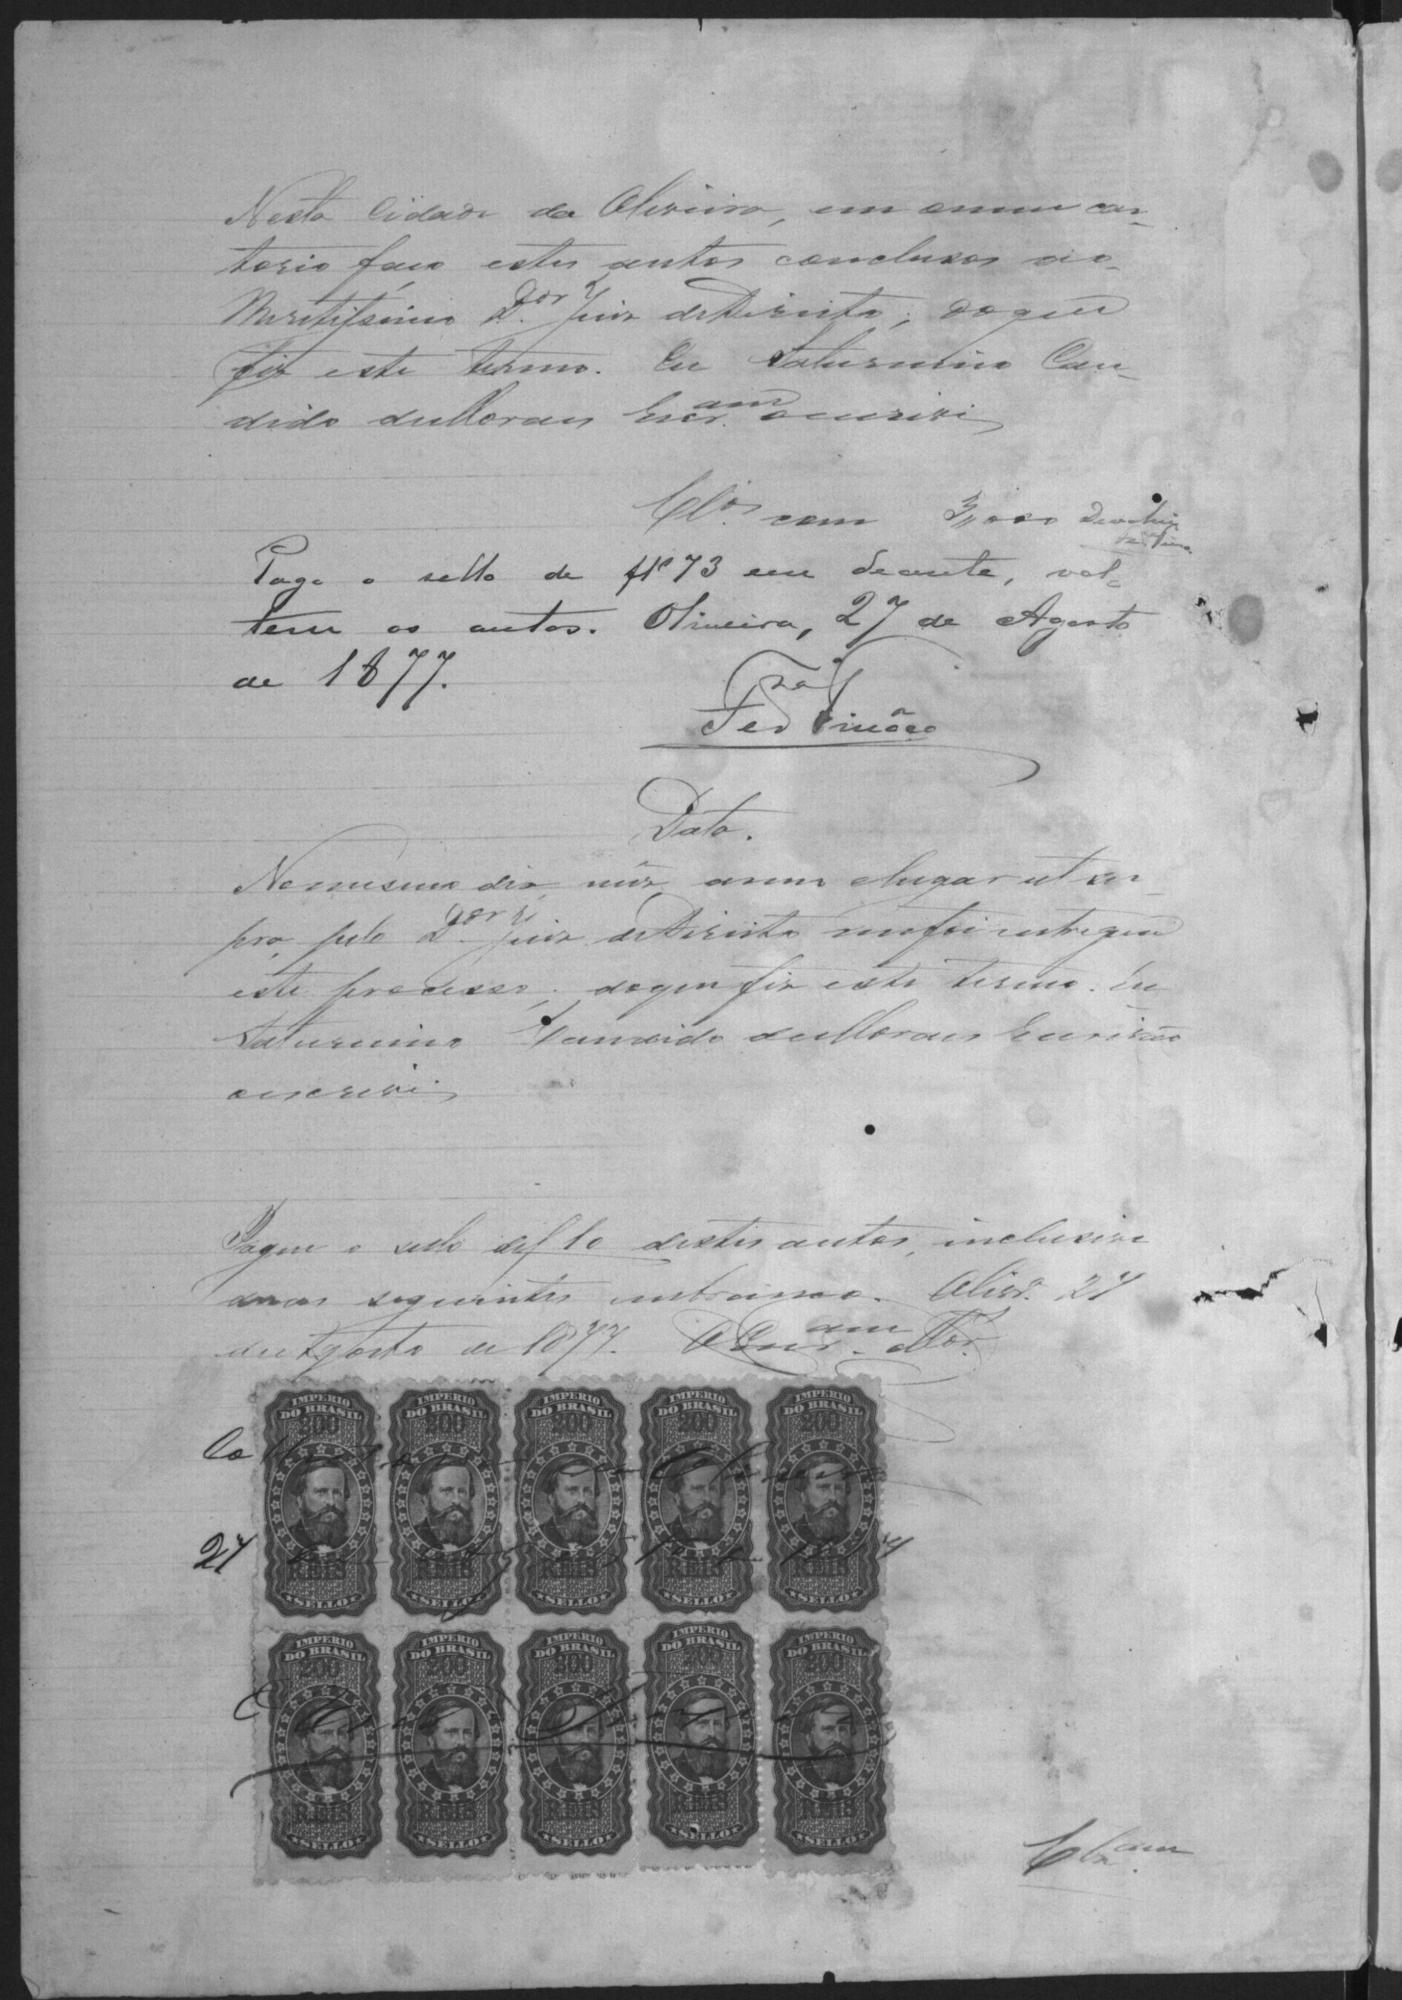 Nesta Cidade da Oliveira, em o meu car-
torio faço estes autos conclusos ao
Meritissimo D.or Juiz de Direito; do que
fiz este termo. Eu Saturnino Can-
dido de Moraes Escr.am o escrivi
Cl.os com 3,,000
Pago o sello de fl. 73 em deante, vol-
tem os autos. Oliveira, 27 de Agosto
de 1877.
Data.
No mesmo dia, mez, anno e lugar ut su-
pra, pelo D.or Juiz de Direito me foi entregue
este processo, do que fiz este termo. Eu
Saturnino Candido de Moraes Escrivão
o escrivi
Pagou o sello de fl 10 destes autos, inclusive
seguintes . Olivr.a 27
de Agosto de 1877. O Escr.am Mor.
IMPERIO DO BRASIL 200 REIS SELLO
IMPERIO DO BRASIL 200 REIS SELLO
IMPERIO DO BRASIL 200 REIS SELLO
IMPERIO DO BRASIL 200 REIS SELLO
IMPERIO DO BRASIL 200 REIS SELLO
27
IMPERIO DO BRASIL 200 REIS SELLO
IMPERIO DO BRASIL 200 REIS SELLO
IMPERIO DO BRASIL 200 REIS SELLO
IMPERIO DO BRASIL 200 REIS SELLO
IMPERIO DO BRASIL 200 REIS SELLO